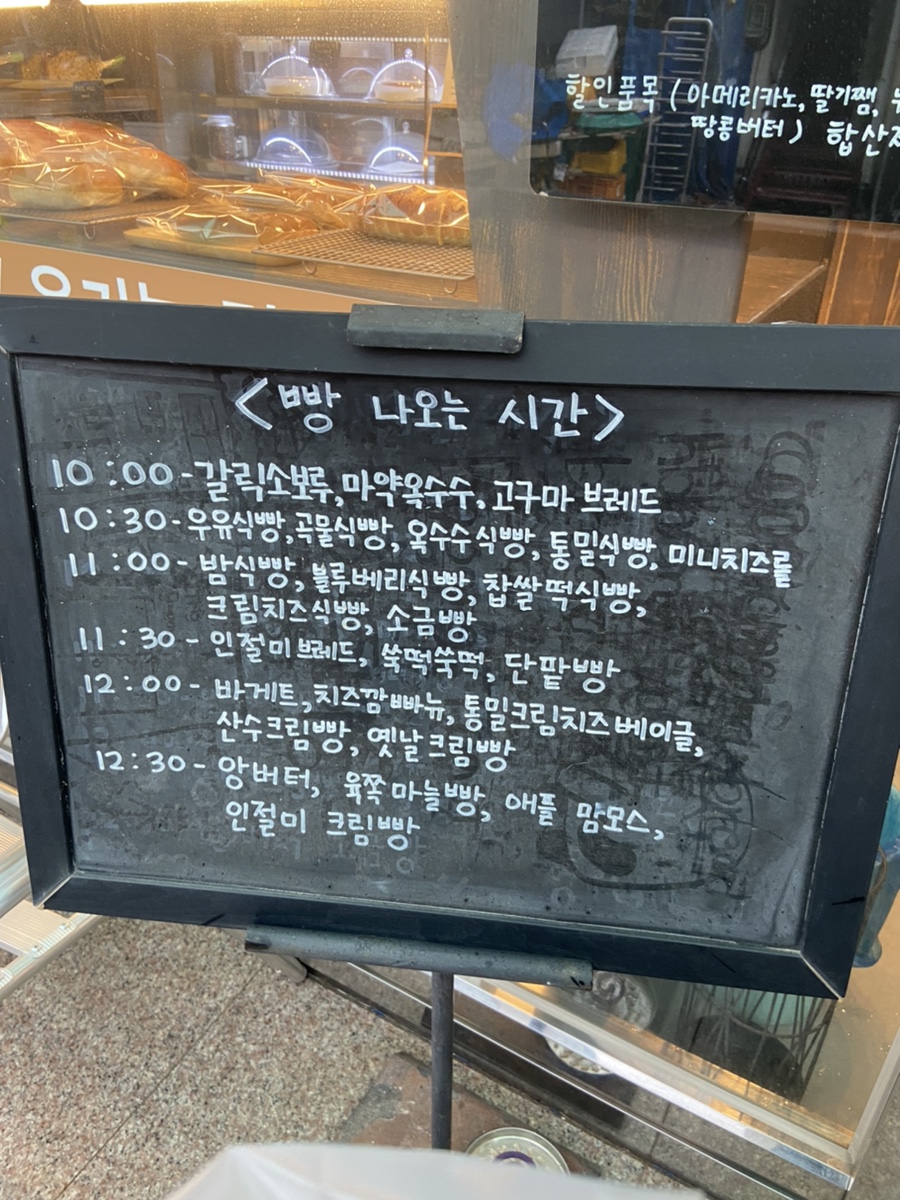 할인품목 (아메리카노, 딸기쨈,
땅콩버터) 합산
<빵 나오는 시간>
10:00 - 갈릭소보루, 마약옥수수, 고구마 브레드
10:30 - 우유식빵, 곡물식빵, 옥수수식빵, 통밀식빵, 미니치즈롤
11:00 - 밤식빵, 블루베리식빵, 찹쌀떡식빵,
크림치즈식빵, 소금빵
11:30 - 인절미브레드, 쑥떡쑥떡, 단팥빵
12:00 - 바게트, 치즈깜빠뉴, 통밀크림치즈베이글,
산수크림빵, 옛날크림빵
12:30 - 앙버터, 육쪽마늘빵, 애플 맘모스,
인절미 크림빵